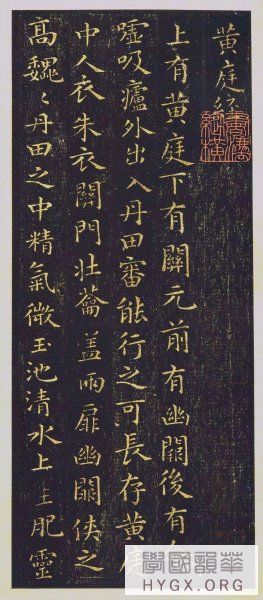 黃庭經
上有黃庭下有關元前有幽闕後有
噓吸廬外出入丹田審能行之可長存黃庭
中人衣朱衣關門壯蘥蓋兩扉幽闕俠之
高巍〻丹田之中精氣微玉池清水上生肥靈
學國韻華
HYGX.ORG